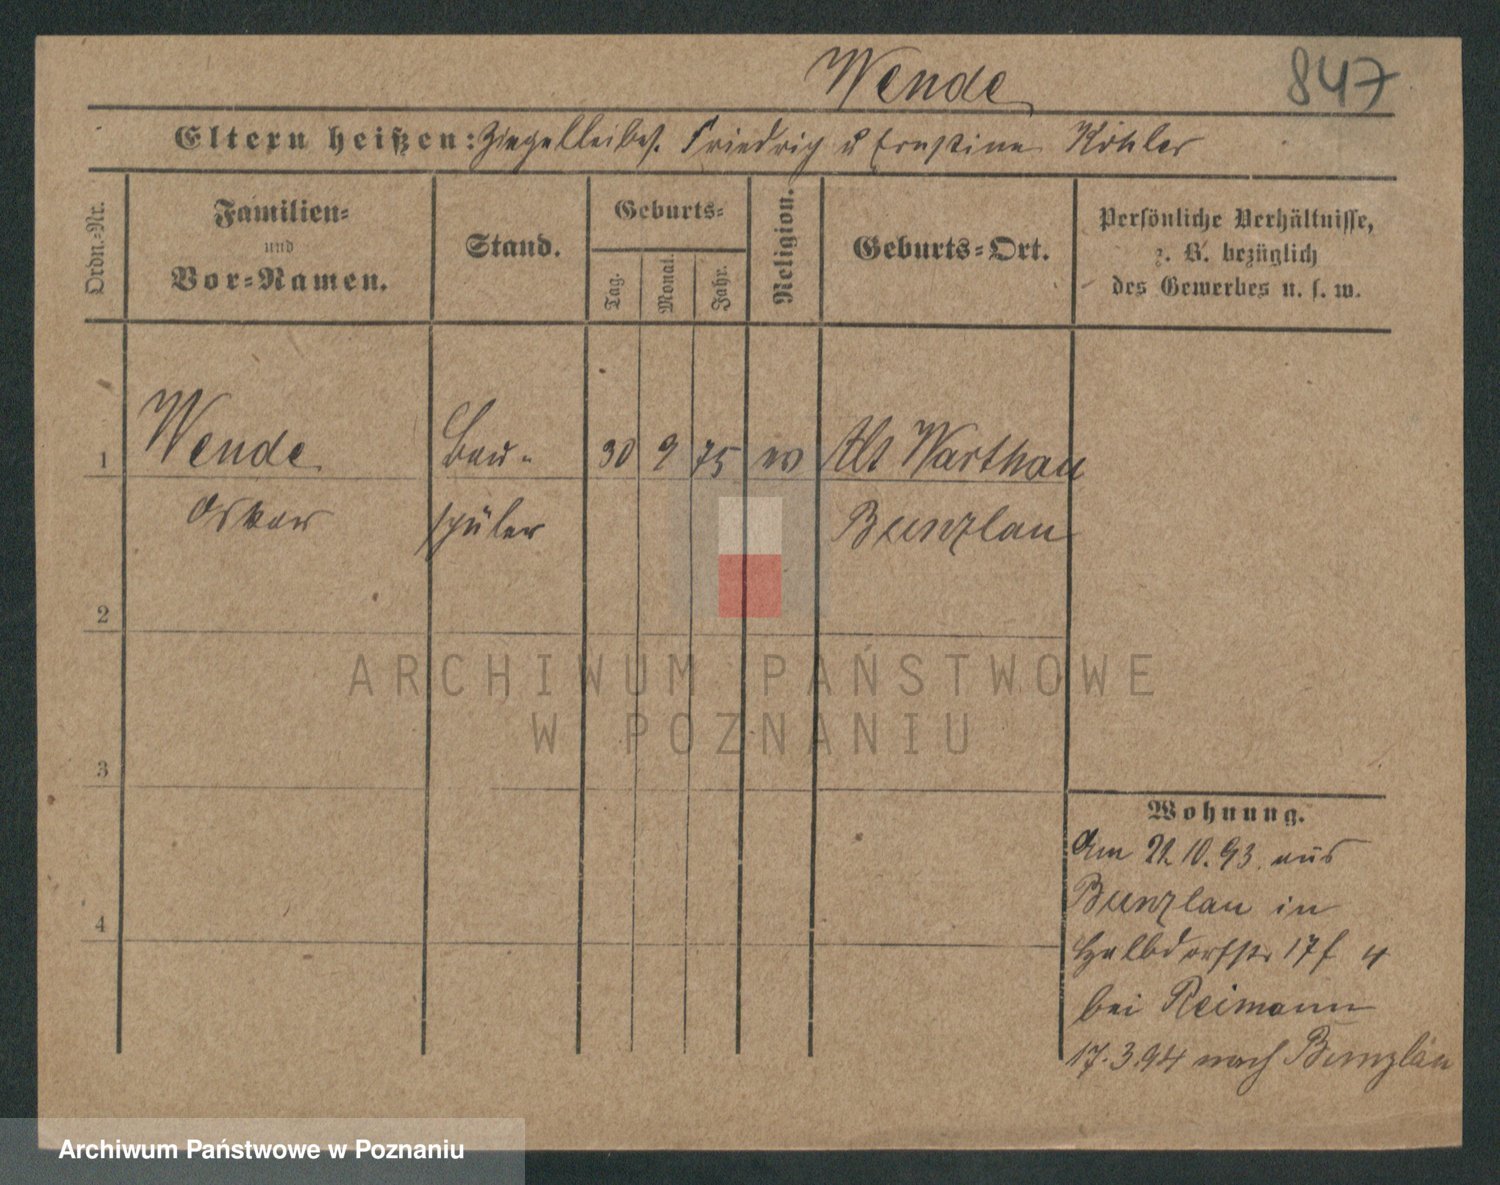 Wende
847
Eltern heißen: Friedrich u Ernstine Köhler
Ordn.-Nr.
Familien-
und
Vor-Namen.
Stand.
Geburts-
Tag.
Monat.
Jahr.
Religion.
Geburts-Ort.
Persönliche Verhältnisse,
z. B. bezüglich
des Gewerbes u. s. w.
1 Wende Bau- 30 9 75 ev Alt Warthau
Oskar schüler Bunzlau
2
3
4
ARCHIWUM PAŃSTWOWE
W POZNANIU
Wohnung.
Am 21.10.93. aus
Bunzlau in
Halbdorfstr 17f 4
bei Reimann
17.3.94 nach Bunzlau
Archiwum Państwowe w Poznaniu